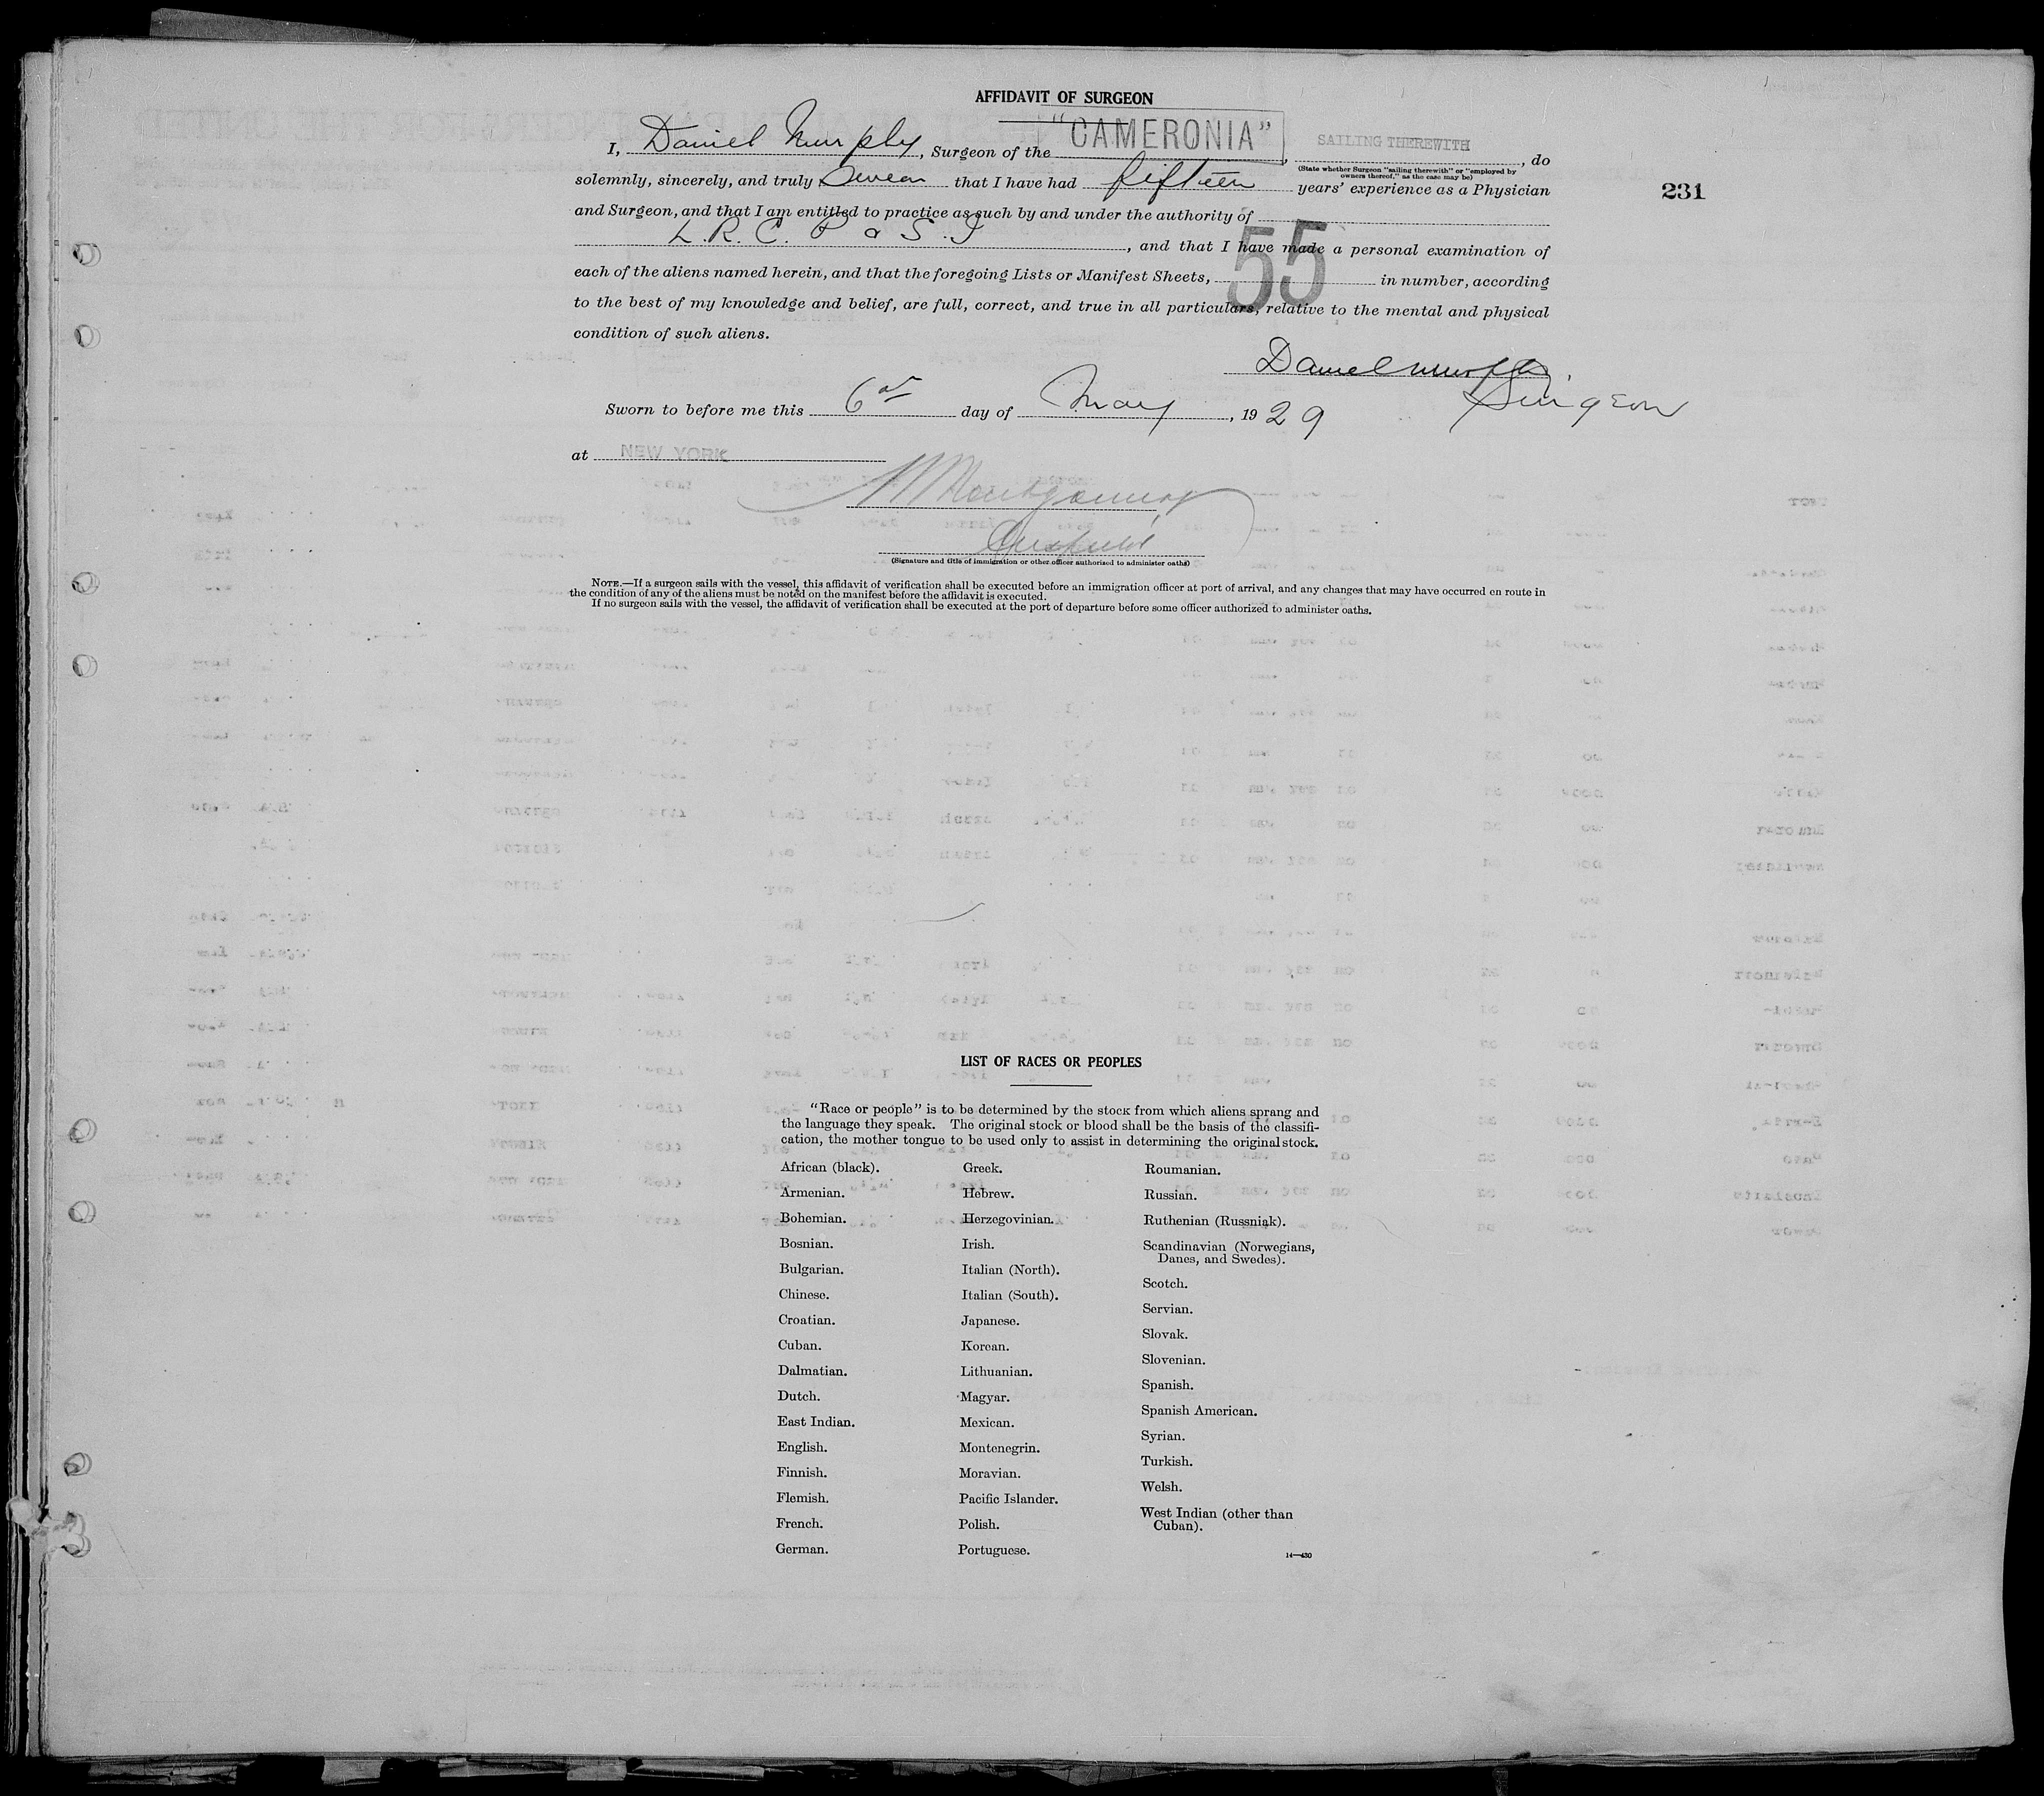 AFFIDAVIT OF SURGEON
I, Daniel Murphy, Surgeon of the "CAMERONIA", SAILING THEREWITH, do
(State whether Surgeon "sailing therewith" or "employed by
owners thereof," as the case may be)
solemnly, sincerely, and truly Swear that I have had fifteen years' experience as a Physician
231
and Surgeon, and that I am entitled to practice as such by and under the authority of
L. R. C. P & S. I, and that I have made a personal examination of
each of the aliens named herein, and that the foregoing Lists or Manifest Sheets, 55 in number, according
to the best of my knowledge and belief, are full, correct, and true in all particulars, relative to the mental and physical
condition of such aliens.
Daniel Murphy.
Surgeon
Sworn to before me this 6 day of May, 1929
at NEW YORK
Montgomery
(Signature and title of immigration or other officer authorized to administer oaths)
NOTE.—If a surgeon sails with the vessel, this affidavit of verification shall be executed before an immigration officer at port of arrival, and any changes that may have occurred en route in
the condition of any of the aliens must be noted on the manifest before the affidavit is executed.
If no surgeon sails with the vessel, the affidavit of verification shall be executed at the port of departure before some officer authorized to administer oaths.
LIST OF RACES OR PEOPLES
"Race or people" is to be determined by the stock from which aliens sprang and
the language they speak. The original stock or blood shall be the basis of the classifi-
cation, the mother tongue to be used only to assist in determining the original stock.
African (black).
Armenian.
Bohemian.
Bosnian.
Bulgarian.
Chinese.
Croatian.
Cuban.
Dalmatian.
Dutch.
East Indian.
English.
Finnish.
Flemish.
French.
German.
Greek.
Hebrew.
Herzegovinian.
Irish.
Italian (North).
Italian (South).
Japanese.
Korean.
Lithuanian.
Magyar.
Mexican.
Montenegrin.
Moravian.
Pacific Islander.
Polish.
Portuguese.
Roumanian.
Russian.
Ruthenian (Russniak).
Scandinavian (Norwegians,
Danes, and Swedes).
Scotch.
Servian.
Slovak.
Slovenian.
Spanish.
Spanish American.
Syrian.
Turkish.
Welsh.
West Indian (other than
Cuban).
14—430